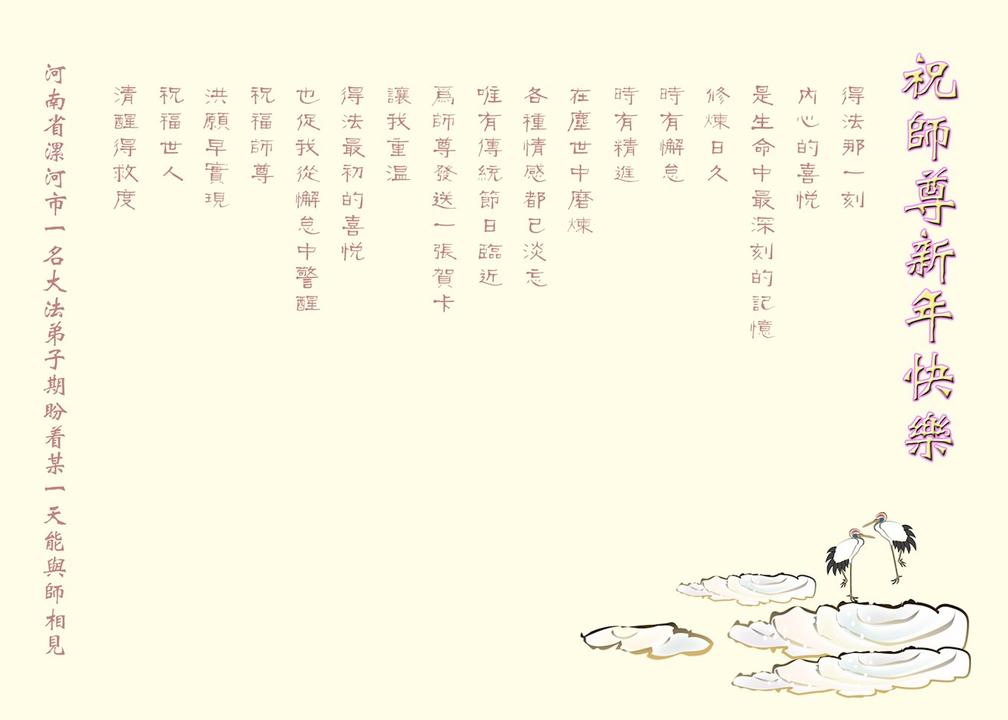 祝師尊新年快樂
得法那一刻
內心的喜悅
是生命中最深刻的記憶
修煉日久
時有懈怠
時有精進
在塵世中磨煉
各種情感都已淡忘
唯有傳統節日臨近
爲師尊發送一張賀卡
讓我重溫
得法最初的喜悅
也促我從懈怠中警醒
祝福師尊
洪願早實現
祝福世人
清醒得救度
河南省漯河市一名大法弟子期盼着某一天能與師相見